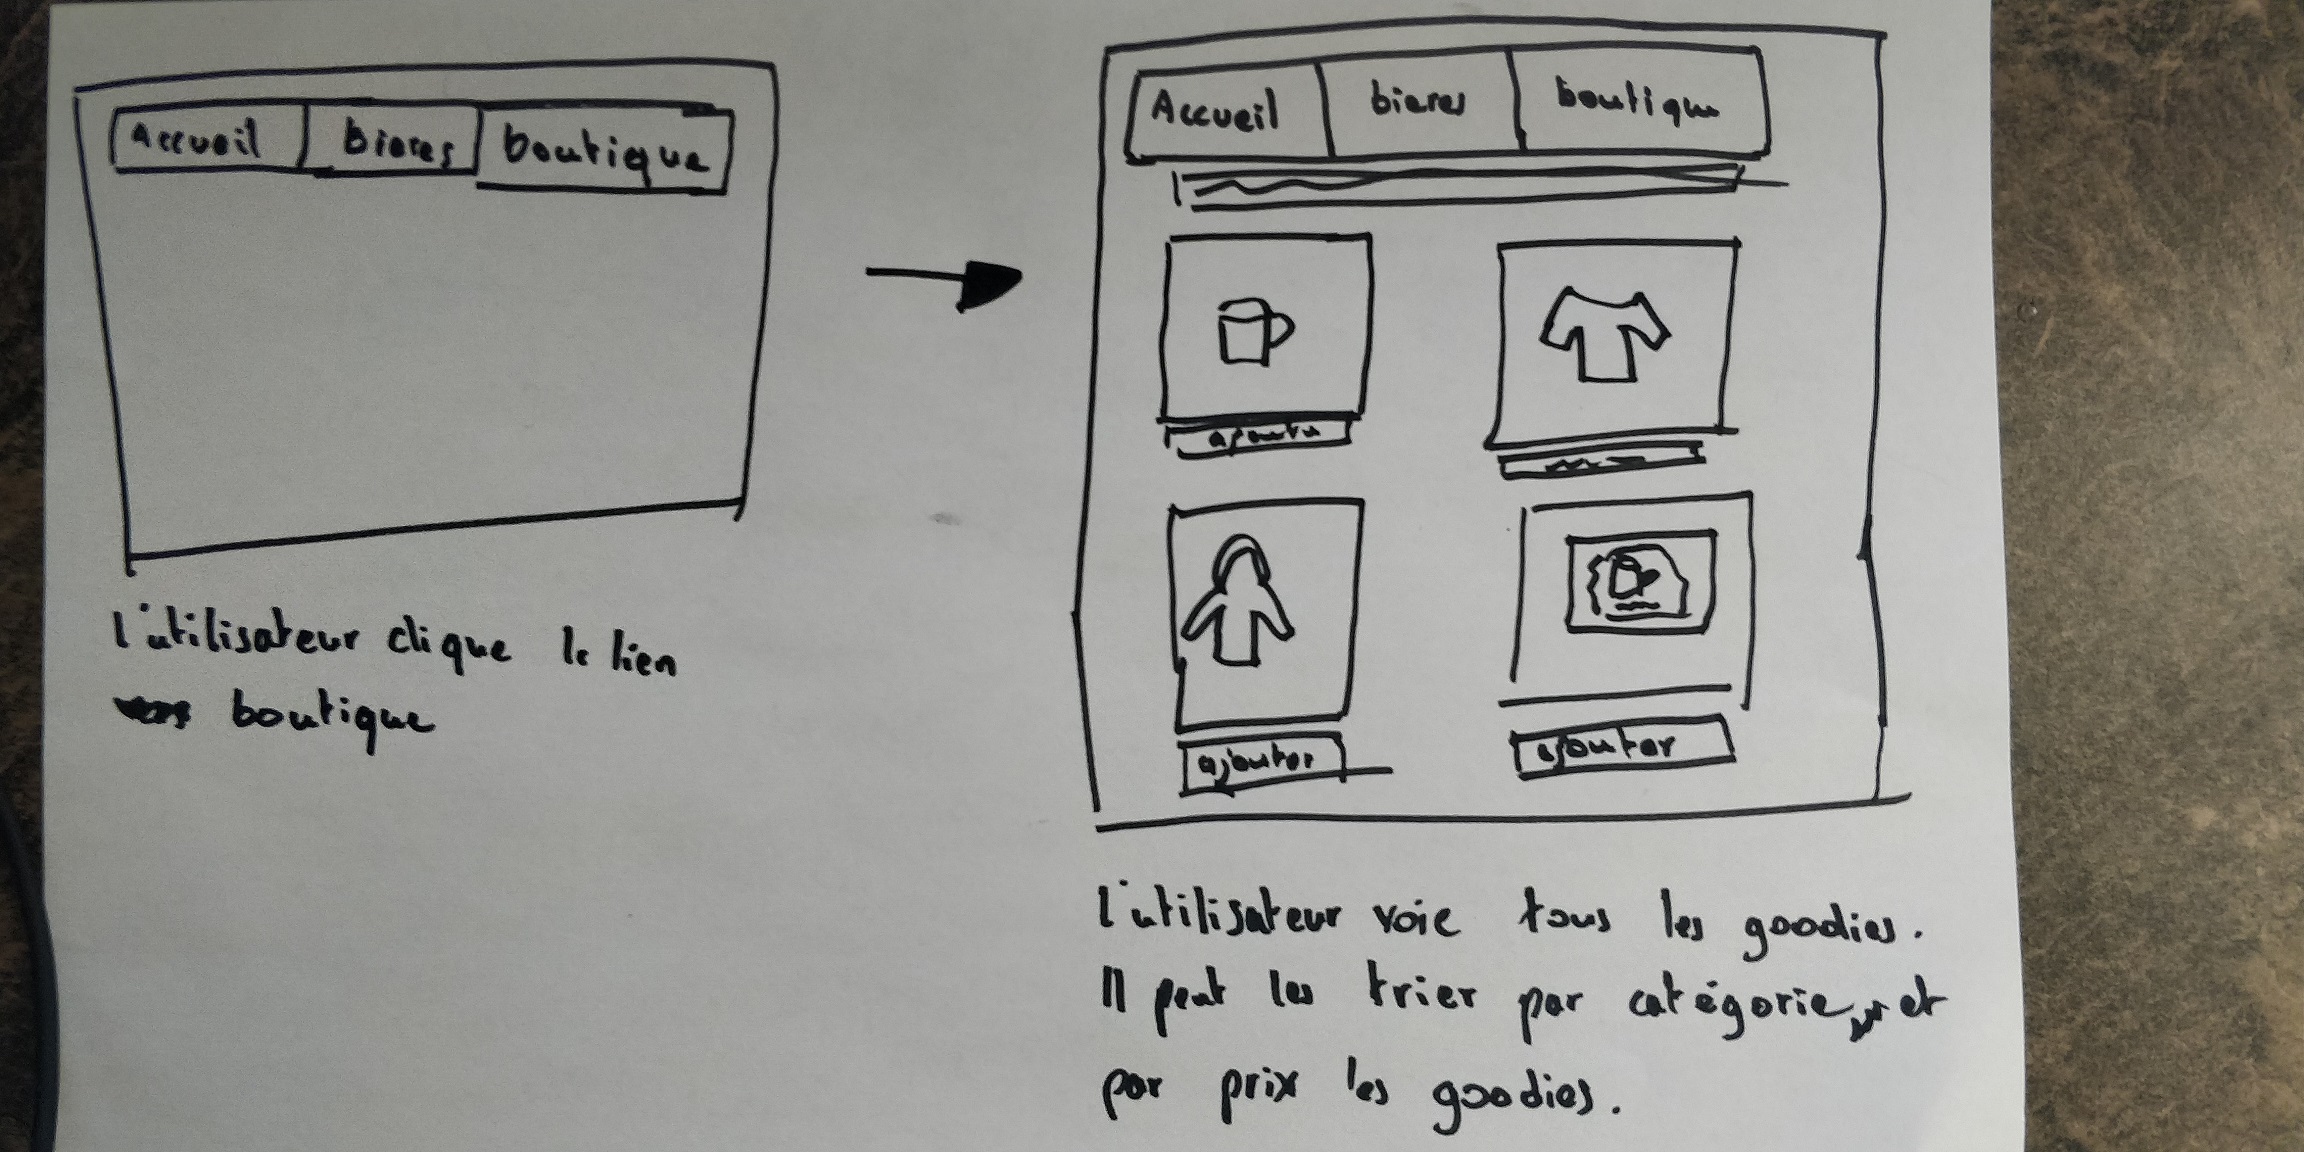 Accueil
bieres
boutique
l'utilisateur clique le lien
boutique
Accueil
bieres
boutique
ajouter
ajouter
ajouter
l'utilisateur voie tous les goodies.
Il peut les trier par catégorie et
par prix les goodies.